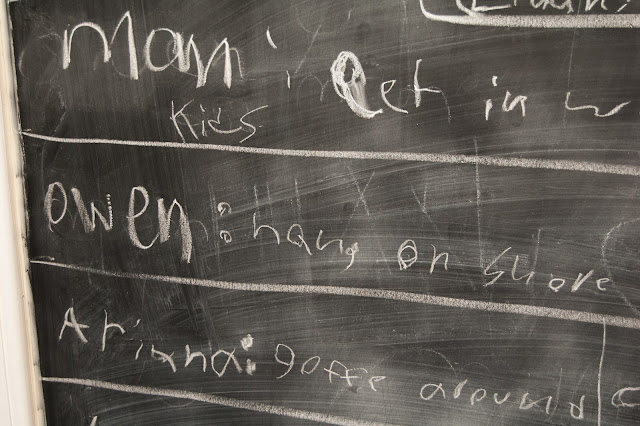 mom : get in w
Kids
owen: hang on shore
Arianna: around